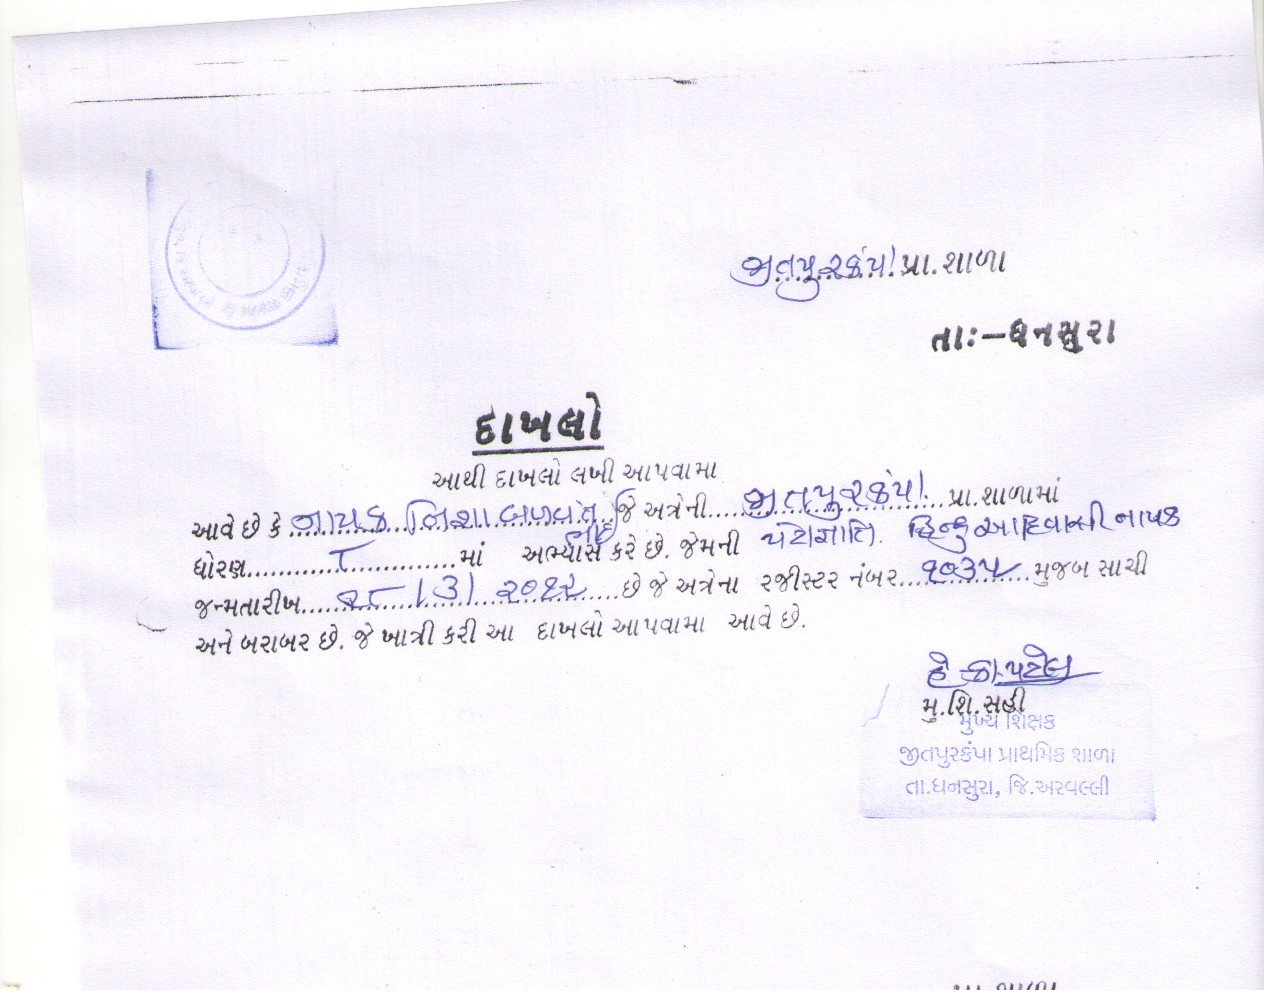 જીતપુરકંપા પ્રા.શાળા
તા:-ધનસુરા
દાખલો
આથી દાખલો લખી આપવામા
આવે છે કે નાયક નિશા બળવંત જે અત્રેની જીતપુરકંપા પ્રા.શાળામાં
ભાઈ
ધોરણ ૮ માં અભ્યાસ કરે છે. જેમની પેટાજ્ઞાતિ. હિન્દુ આદિવાસી નાયક
જન્મતારીખ ૨૮/૩/૨૦૧૨ છે જે અત્રેના રજીસ્ટર નંબર ૧૦૩૫ મુજબ સાચી
અને બરાબર છે. જે ખાત્રી કરી આ દાખલો આપવામા આવે છે.
હે કા. પટેલ
મુ.શિ.સહી
મુખ્ય શિક્ષક
જીતપુરકંપા પ્રાથમિક શાળા
તા.ધનસુરા, જિ.અરવલ્લી
પ્રા.શાળા